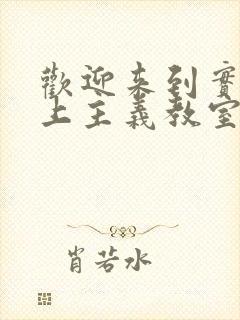 歡迎来到實
上主義教室
肖若水